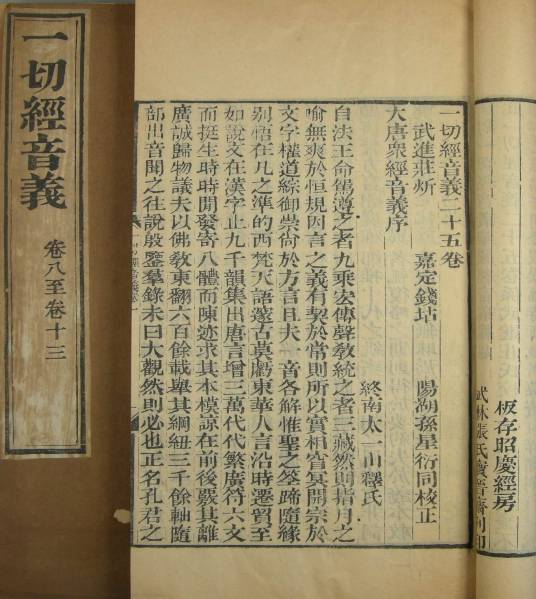 板存昭慶經房
武林張氏寶晉齋刊印
一切經音義二十五卷
武進莊炘 嘉定錢坫 陽湖孫星衍同校正
大唐衆經音義序
終南太一山釋氏
自法王命駕遵之者九乘宏傳聲教統之者三藏然則指月之
喻無爽於恒規因言之義有契於常則所以實相宵冥開宗於
文字權道綜御崇尙於方言且夫一音各解惟聖之筌蹄隨緣
别悟在凡之準的西梵天語邃古莫虧東華人言沿時遷貿至
如說文在漢字止九千韻集出唐言增三萬代代繁廣符六文
而挺生時時開發寄八體而陳迹求其本模諒在前後覈其離
廣誠歸物議夫以佛教東翻六百餘載舉其綱紐三千餘軸隨
部出音聞之往說殷鑒羣錄未曰大觀然則必也正名孔君之
一切經音義
卷八至卷十三